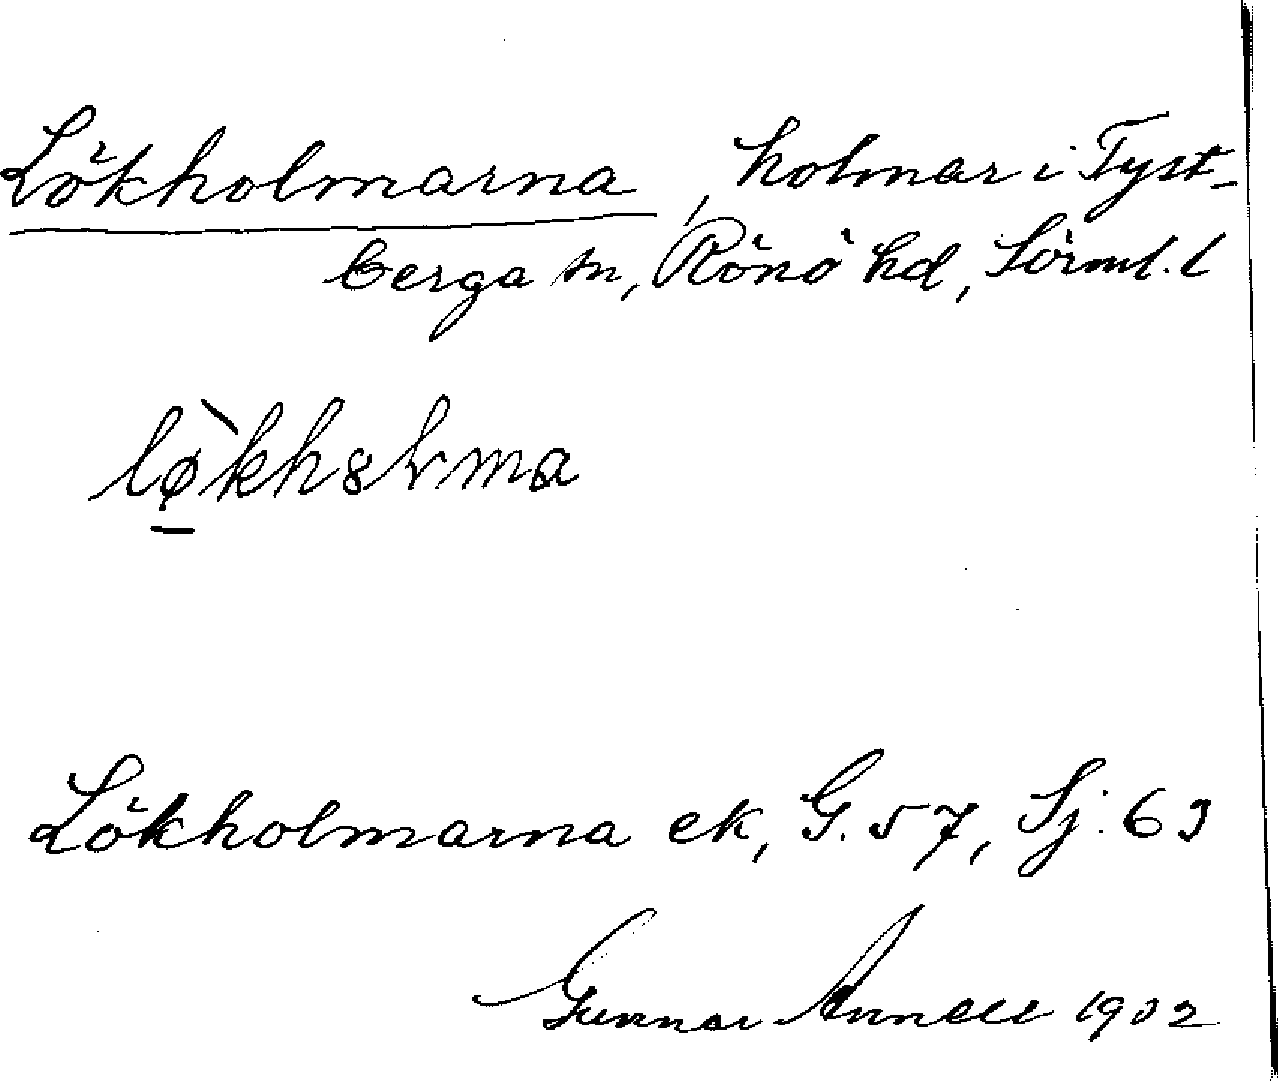 Lökholmarna, holmar i Tyst-
berga sn, Rönö hd, Sörml. l
lø̀khoLma
Lökholmarna ek, G. 57, Sj: 63
Gunnar Annell 1902